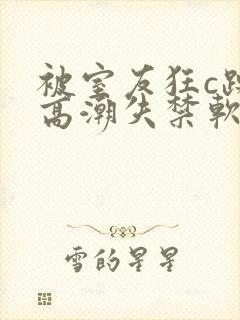 被室友狂c躁
高潮失禁軟
雪的星星